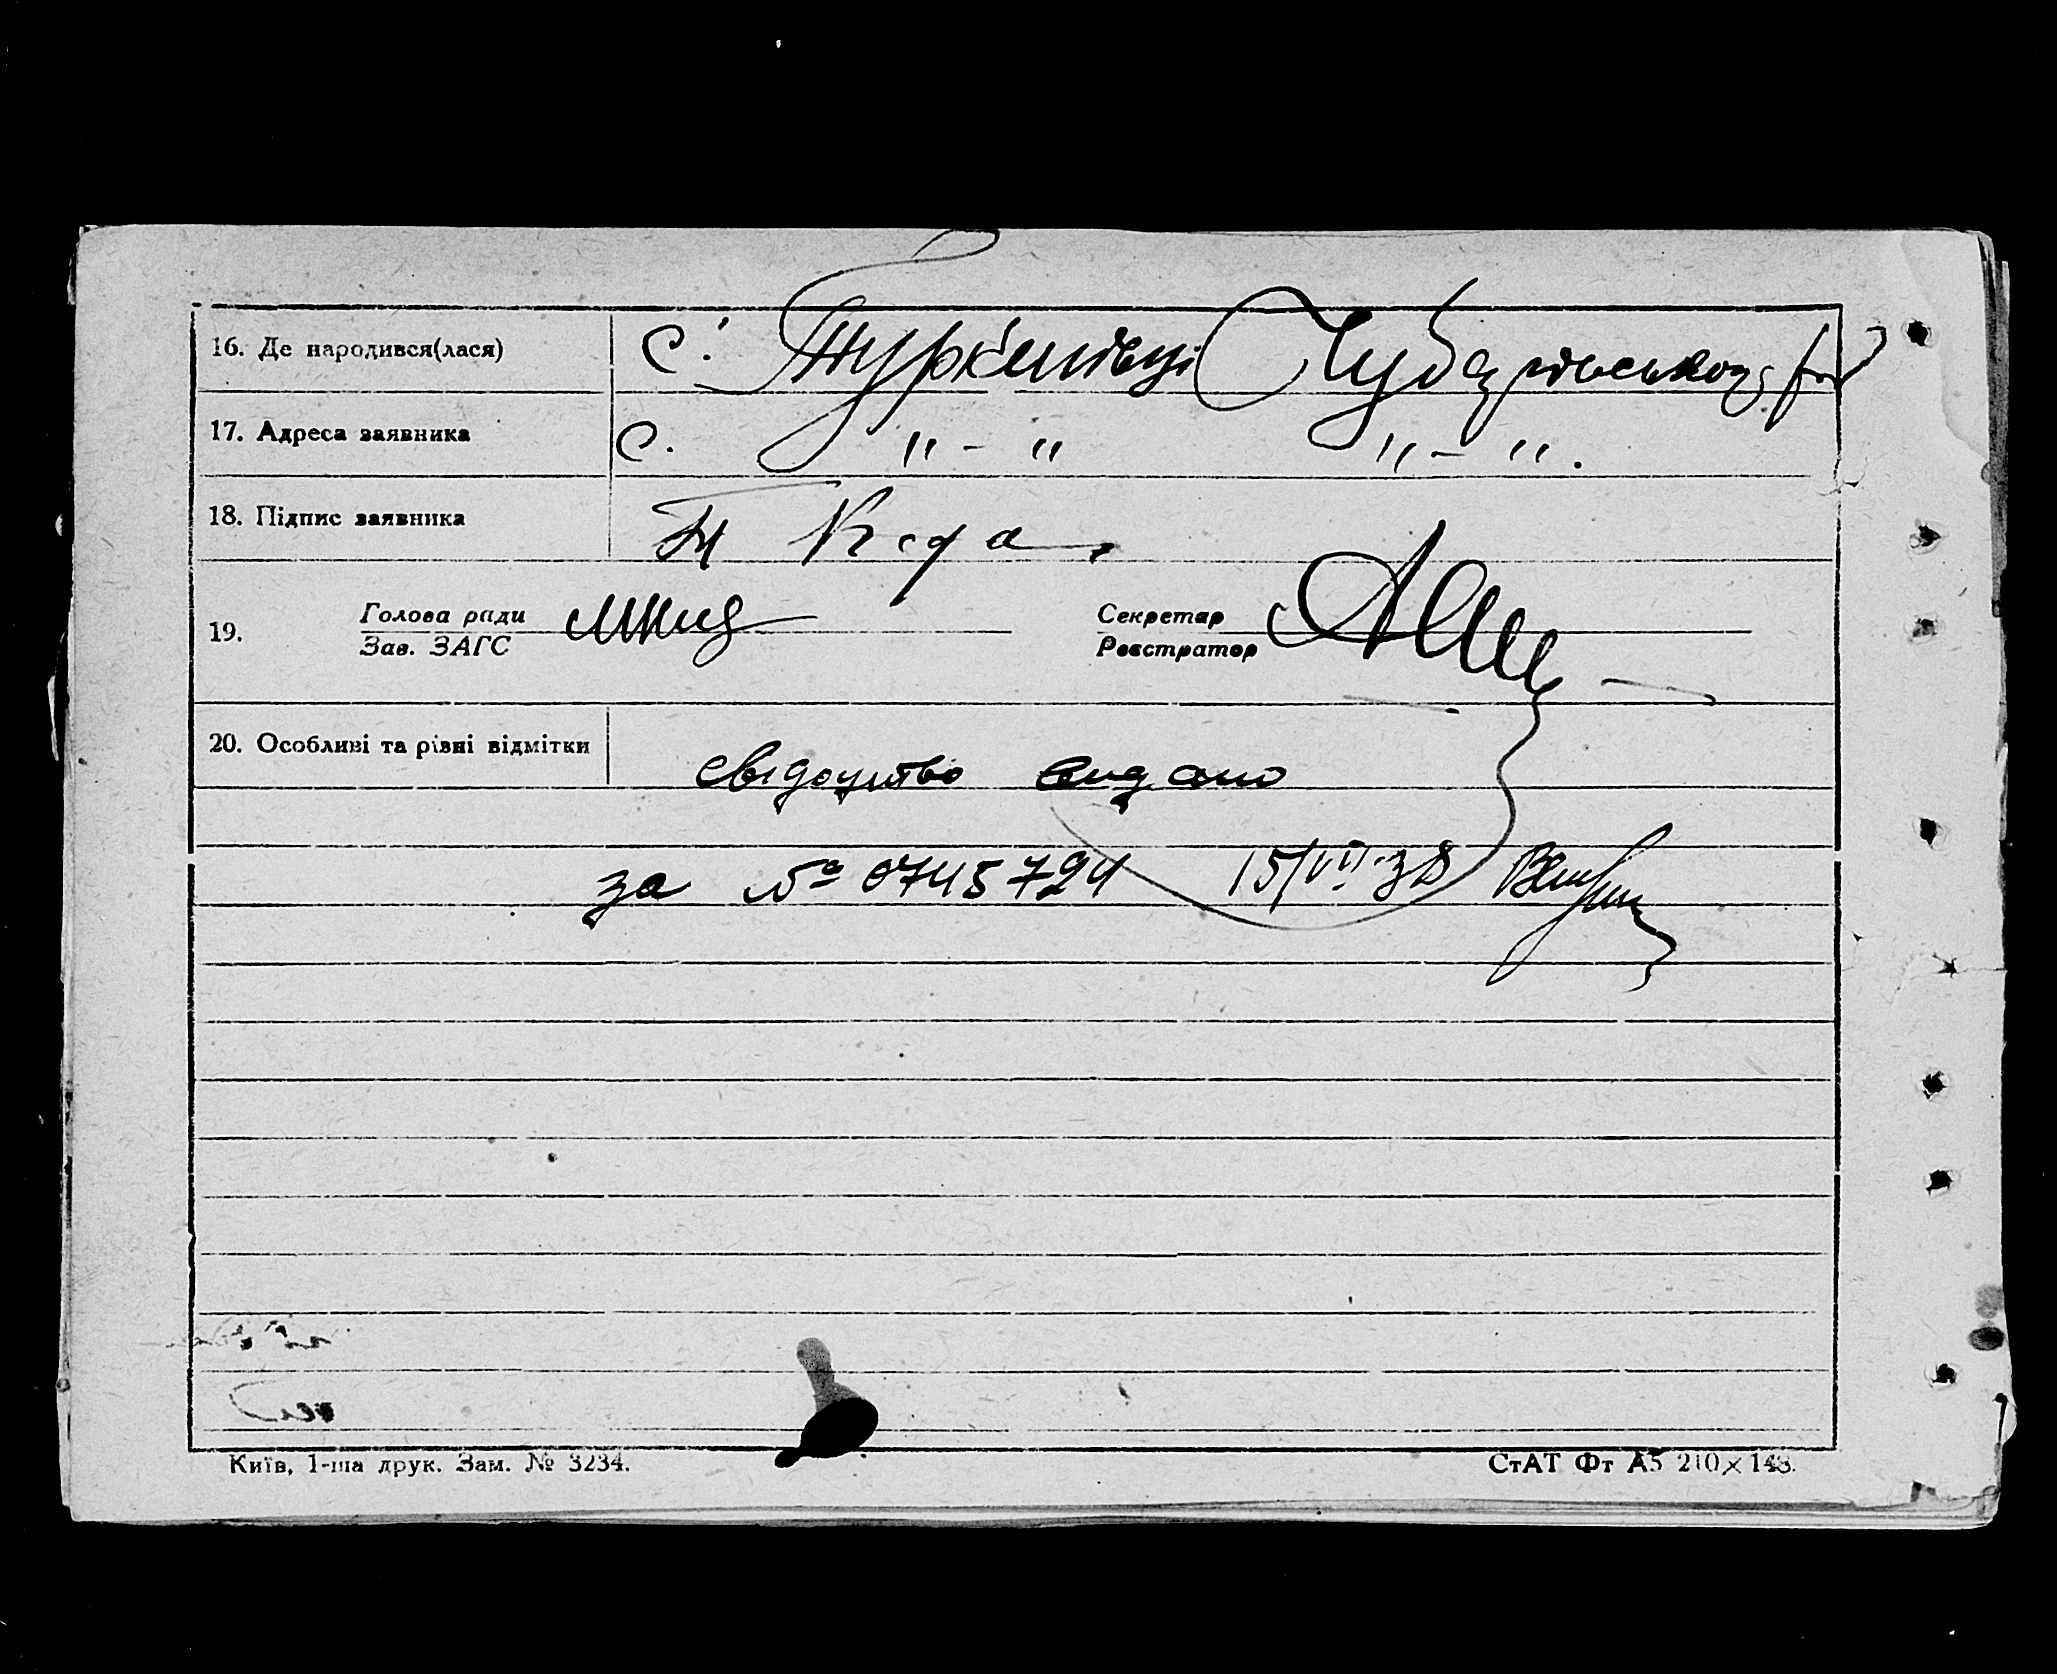 16. Де народився(лася) с. Туркенівці Чубарівському р-ну
17. Адреса заявника с. " - " " - ".
18. Підпис заявника
19. Голова ради Секретар
Зав. ЗАГС Реєстратор
20. Особливі та рівні відмітки свідоцтво видано
за № 0745724 15/VII-38
Київ, 1-ша друк. Зам. № 3234. СтАТ Фт А5 210×148.